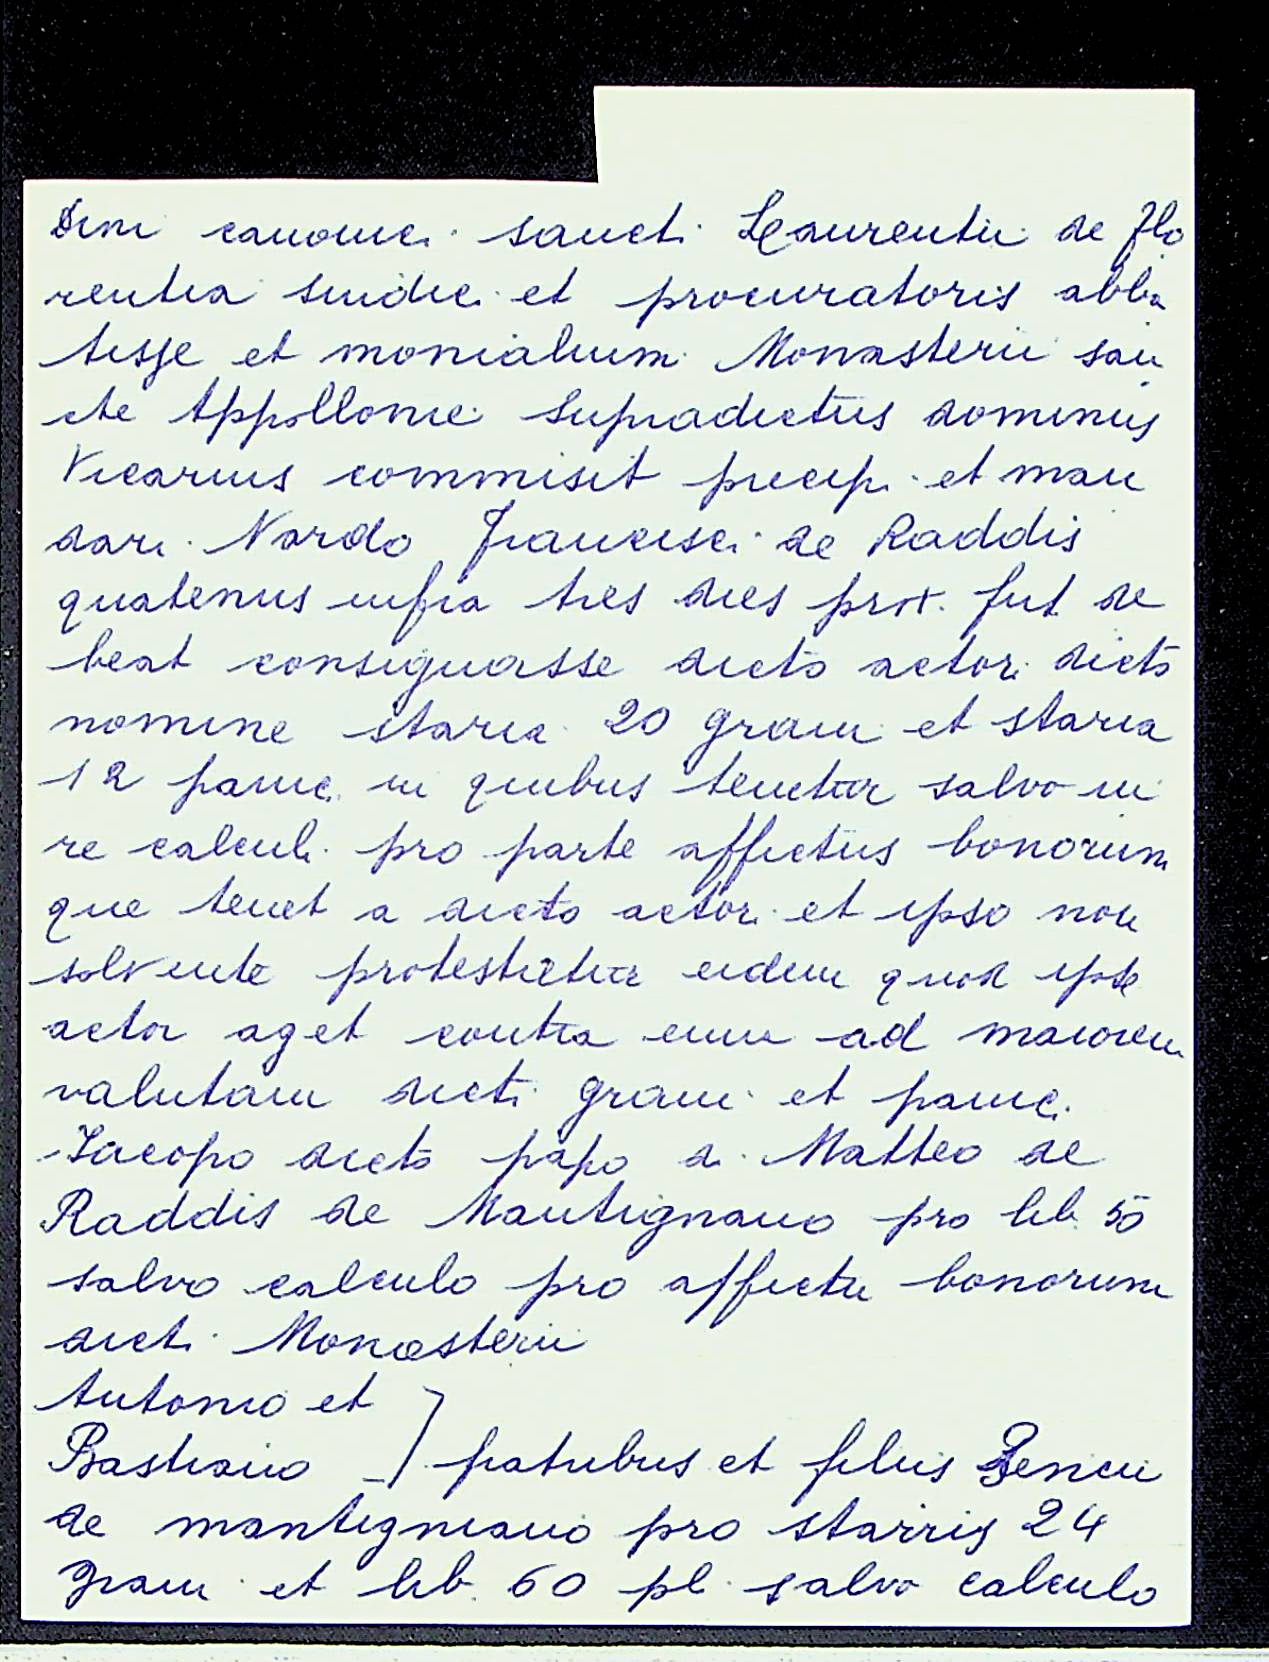 Dini canonici sancti Laurentii de Flo
rentia sindici et procuratoris abba
tisse et monialium Monasterii san
cte Appollonie Supradictus dominus
Vicarius commisit precip. et man
dari Nardo Francisci de Raddis
quatenus infra tres dies prox. fut de
beat consignasse dicto actori dicto
nomine staria 20 grani et staria
12 panici in quibus tenetur salvo iu
re calculi pro parte affictus bonorum
que tenet a dicto actori et ipso non
solvente protestatur eidem quod ipse
actor aget contra eum ad maiorem
valutam dicti grani et panici.
Iacopo dicto papo di Matteo de
Raddis de Mantignano pro lib. 50
salvo calculo pro affictu bonorum
dicti Monasterii
Antonio et
Bastiano fratribus et filiis Bencii
de mantigniano pro stariis 24
grani et lib. 60 pl. salvo calculo